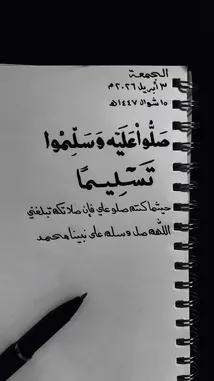 الجمعة
٣ أبريل ٢٠٢٦م
١٥ شوال ١٤٤٧هـ
صَلُّوا عَلَيْهِ وَسَلِّمُوا
تَسْلِيمًا
حيثما كنتم صلو علي فإن صلاتكم تبلغني
اللهم صل وسلم على نبينا محمد